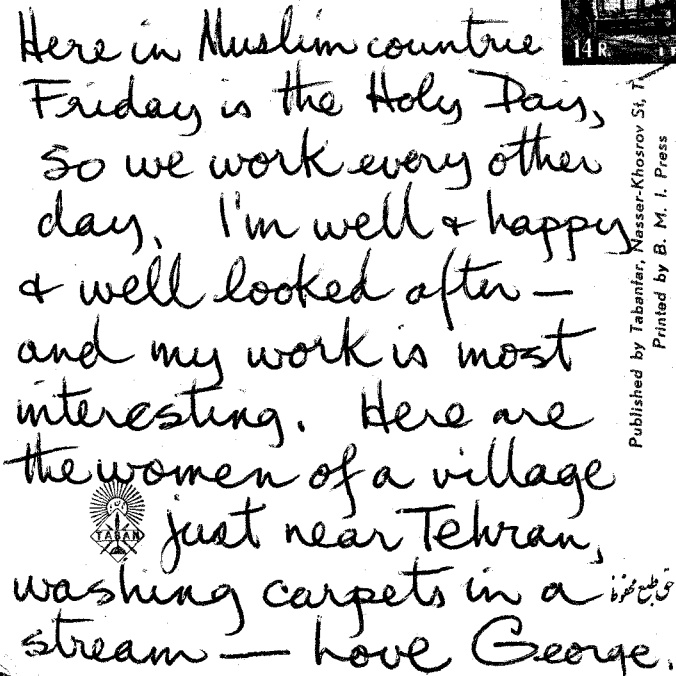 Here in Muslim countrie
Friday is the Holy Day,
so we work every other
day. I'm well & happy
& well looked after —
and my work is most
interesting. Here are
the women of a village
just near Tehran,
washing carpets in a
stream — Love George.
14 R
Published by Tabanfar, Nasser-Khosrov St, T
Printed by B. M. I. Press
TABAN
حق طبع محفوظ